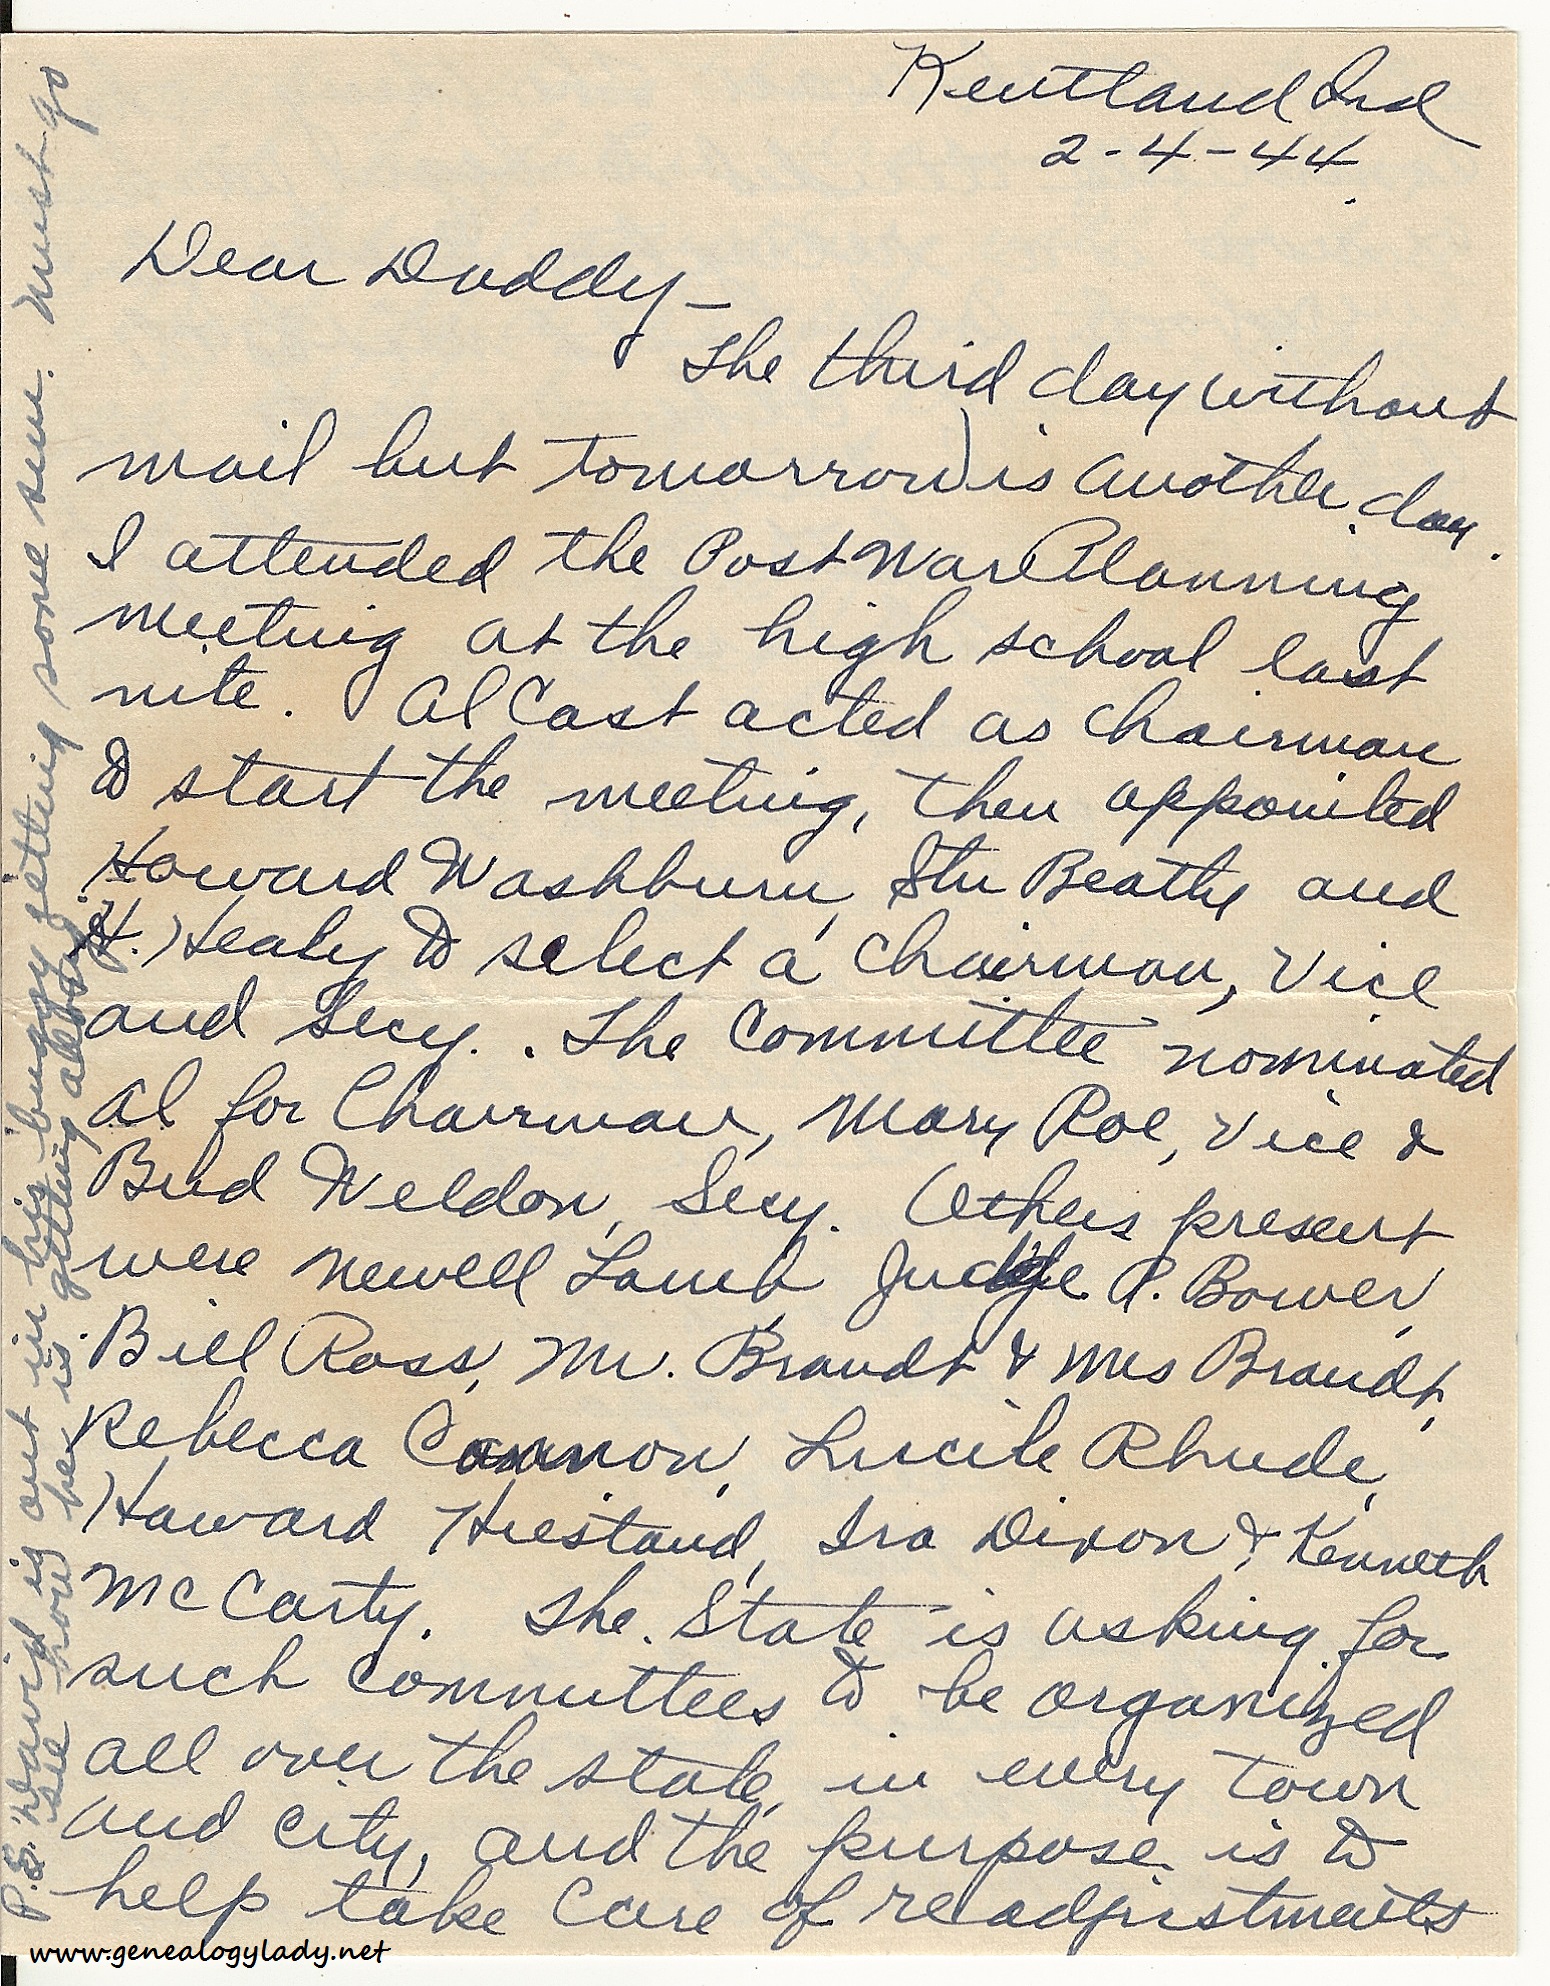 Kentland Ind
2-4-44.
Dear Daddy—
The third day without
mail but tomorrow is another day.
I attended the Post War Planning
meeting at the high school last
nite. Al Cast acted as chairman
to start the meeting, then appointed
Howard Washburn, Stu Beatty and
H. Healy to select a chairman, Vice
and Secy. . The Committee nominated
Al for Chairman, Mary Roe, Vice &
Bud Weldon, Secy. Others present
were Newell Lamb, Judge P. Bower,
Bill Ross, Mr. Brandt & Mrs Brandt,
Rebecca Cannon, Lucile Rhude,
Howard Hiestand, Ira Dixon & Kenneth
McCarty. The State is asking for
such committees to be organized
all over the state, in every town
and city, and the purpose is to
help take care of readjustments
P.S. David is out in his buggy getting some sun. Must go
see how he is getting along.
www.genealogylady.net